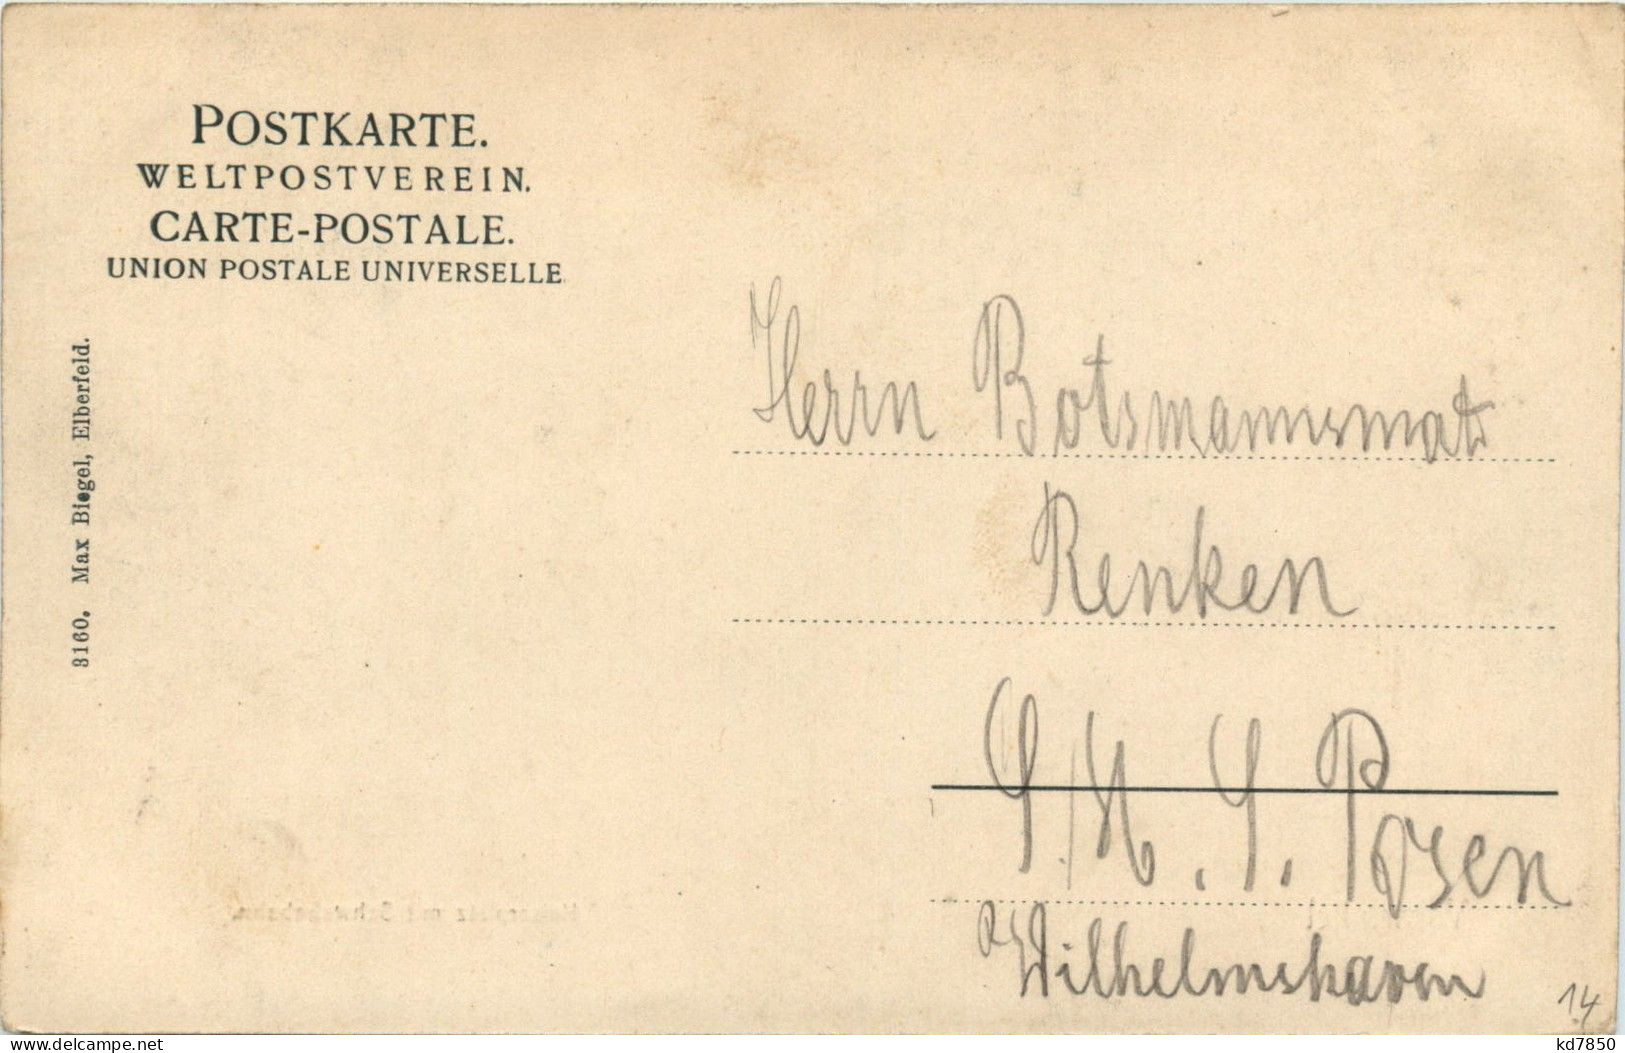 POSTKARTE.
WELTPOSTVEREIN.
CARTE-POSTALE.
UNION POSTALE UNIVERSELLE
3160. Max Biegel, Elberfeld.
Herrn Botsmannsmat
Renken
S. M. S. Posen
Wilhelmshaven
14
kd7850